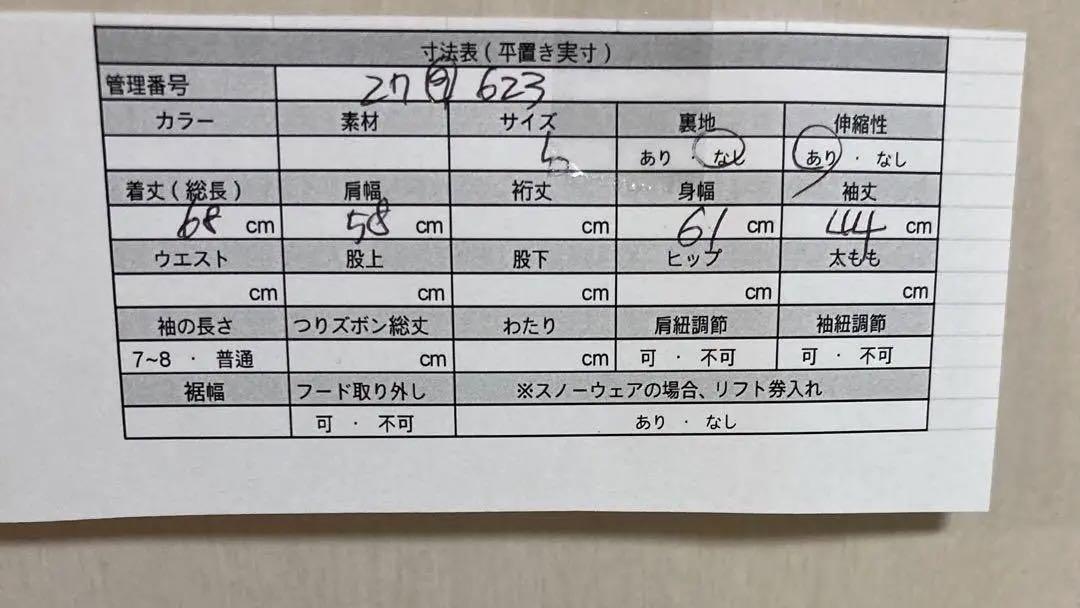 寸法表(平置き実寸)
管理番号 27 623
カラー 素材 サイズ 裏地 伸縮性
L あり ・ なし あり ・ なし
着丈(総長) 肩幅 裄丈 身幅 袖丈
68 cm 58 cm cm 61 cm 44 cm
ウエスト 股上 股下 ヒップ 太もも
cm cm cm cm cm
袖の長さ つりズボン総丈 わたり 肩紐調節 袖紐調節
7~8 ・ 普通 cm cm 可 ・ 不可 可 ・ 不可
裾幅 フード取り外し ※スノーウェアの場合、リフト券入れ
可 ・ 不可 あり ・ なし